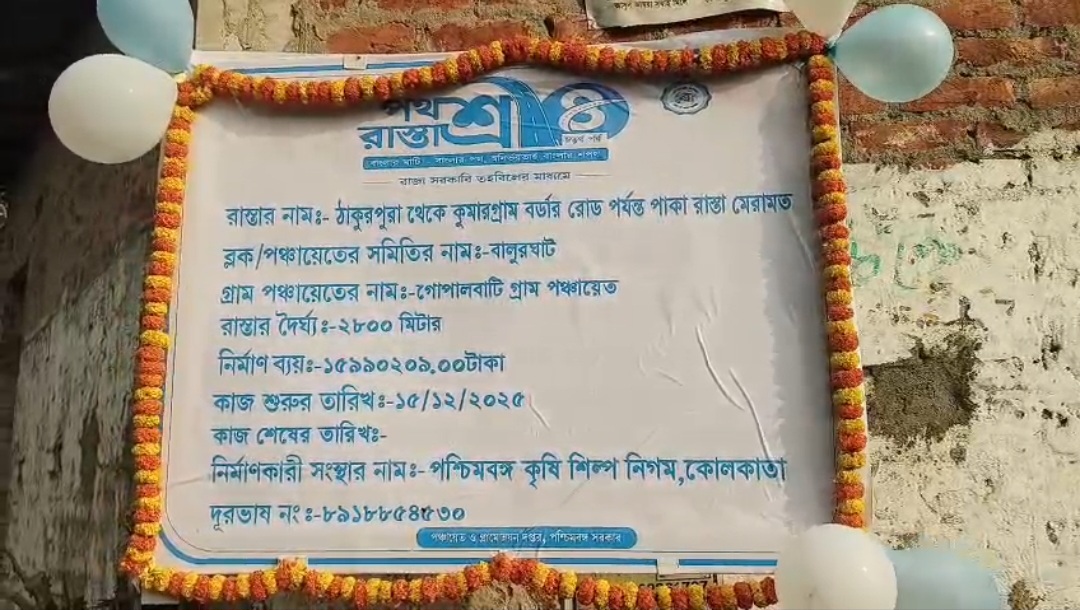 পথ শ্রী ৪
রাস্তা
চতুর্থ পর্ব
রাজ্য সরকারি তহবিলের মাধ্যমে
রাস্তার নাম:- ঠাকুরপুরা থেকে কুমারগ্রাম বর্ডার রোড পর্যন্ত পাকা রাস্তা মেরামত
ব্লক/পঞ্চায়েতের সমিতির নাম:-বালুরঘাট
গ্রাম পঞ্চায়েতের নাম:-গোপালবাটি গ্রাম পঞ্চায়েত
রাস্তার দৈর্ঘ্য:-২৮০০ মিটার
নির্মাণ ব্যয়:-১৫৯৯০২০৯.০০টাকা
কাজ শুরুর তারিখ:-১৫/১২/২০২৫
কাজ শেষের তারিখ:-
নির্মাণকারী সংস্থার নাম:- পশ্চিমবঙ্গ কৃষি শিল্প নিগম,কোলকাতা
দূরভাষ নং:-৮৯১৮৮৫৪৫৩০
পঞ্চায়েত ও গ্রামোন্নয়ন দপ্তর, পশ্চিমবঙ্গ সরকার